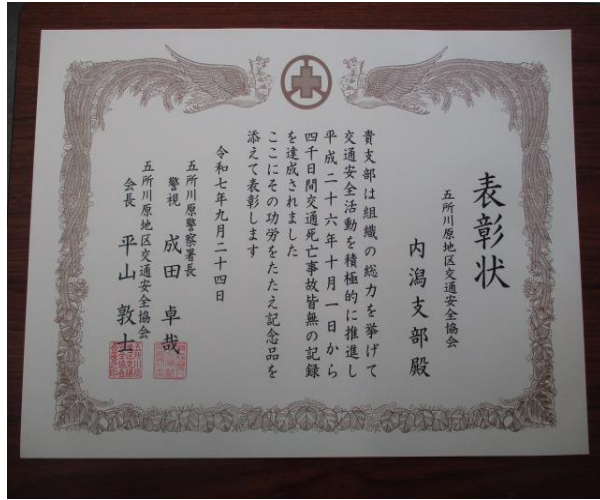 表彰状
五所川原地区交通安全協会
内潟支部殿
貴支部は組織の総力を挙げて
交通安全活動を積極的に推進し
平成二十六年十月一日から
四千日間交通死亡事故皆無の記録
を達成されました
ここにその功労をたたえ記念品を
添えて表彰します
令和七年九月二十四日
五所川原警察署長
警視 成田卓哉
五所川原地区交通安全協会
会長 平山敦士